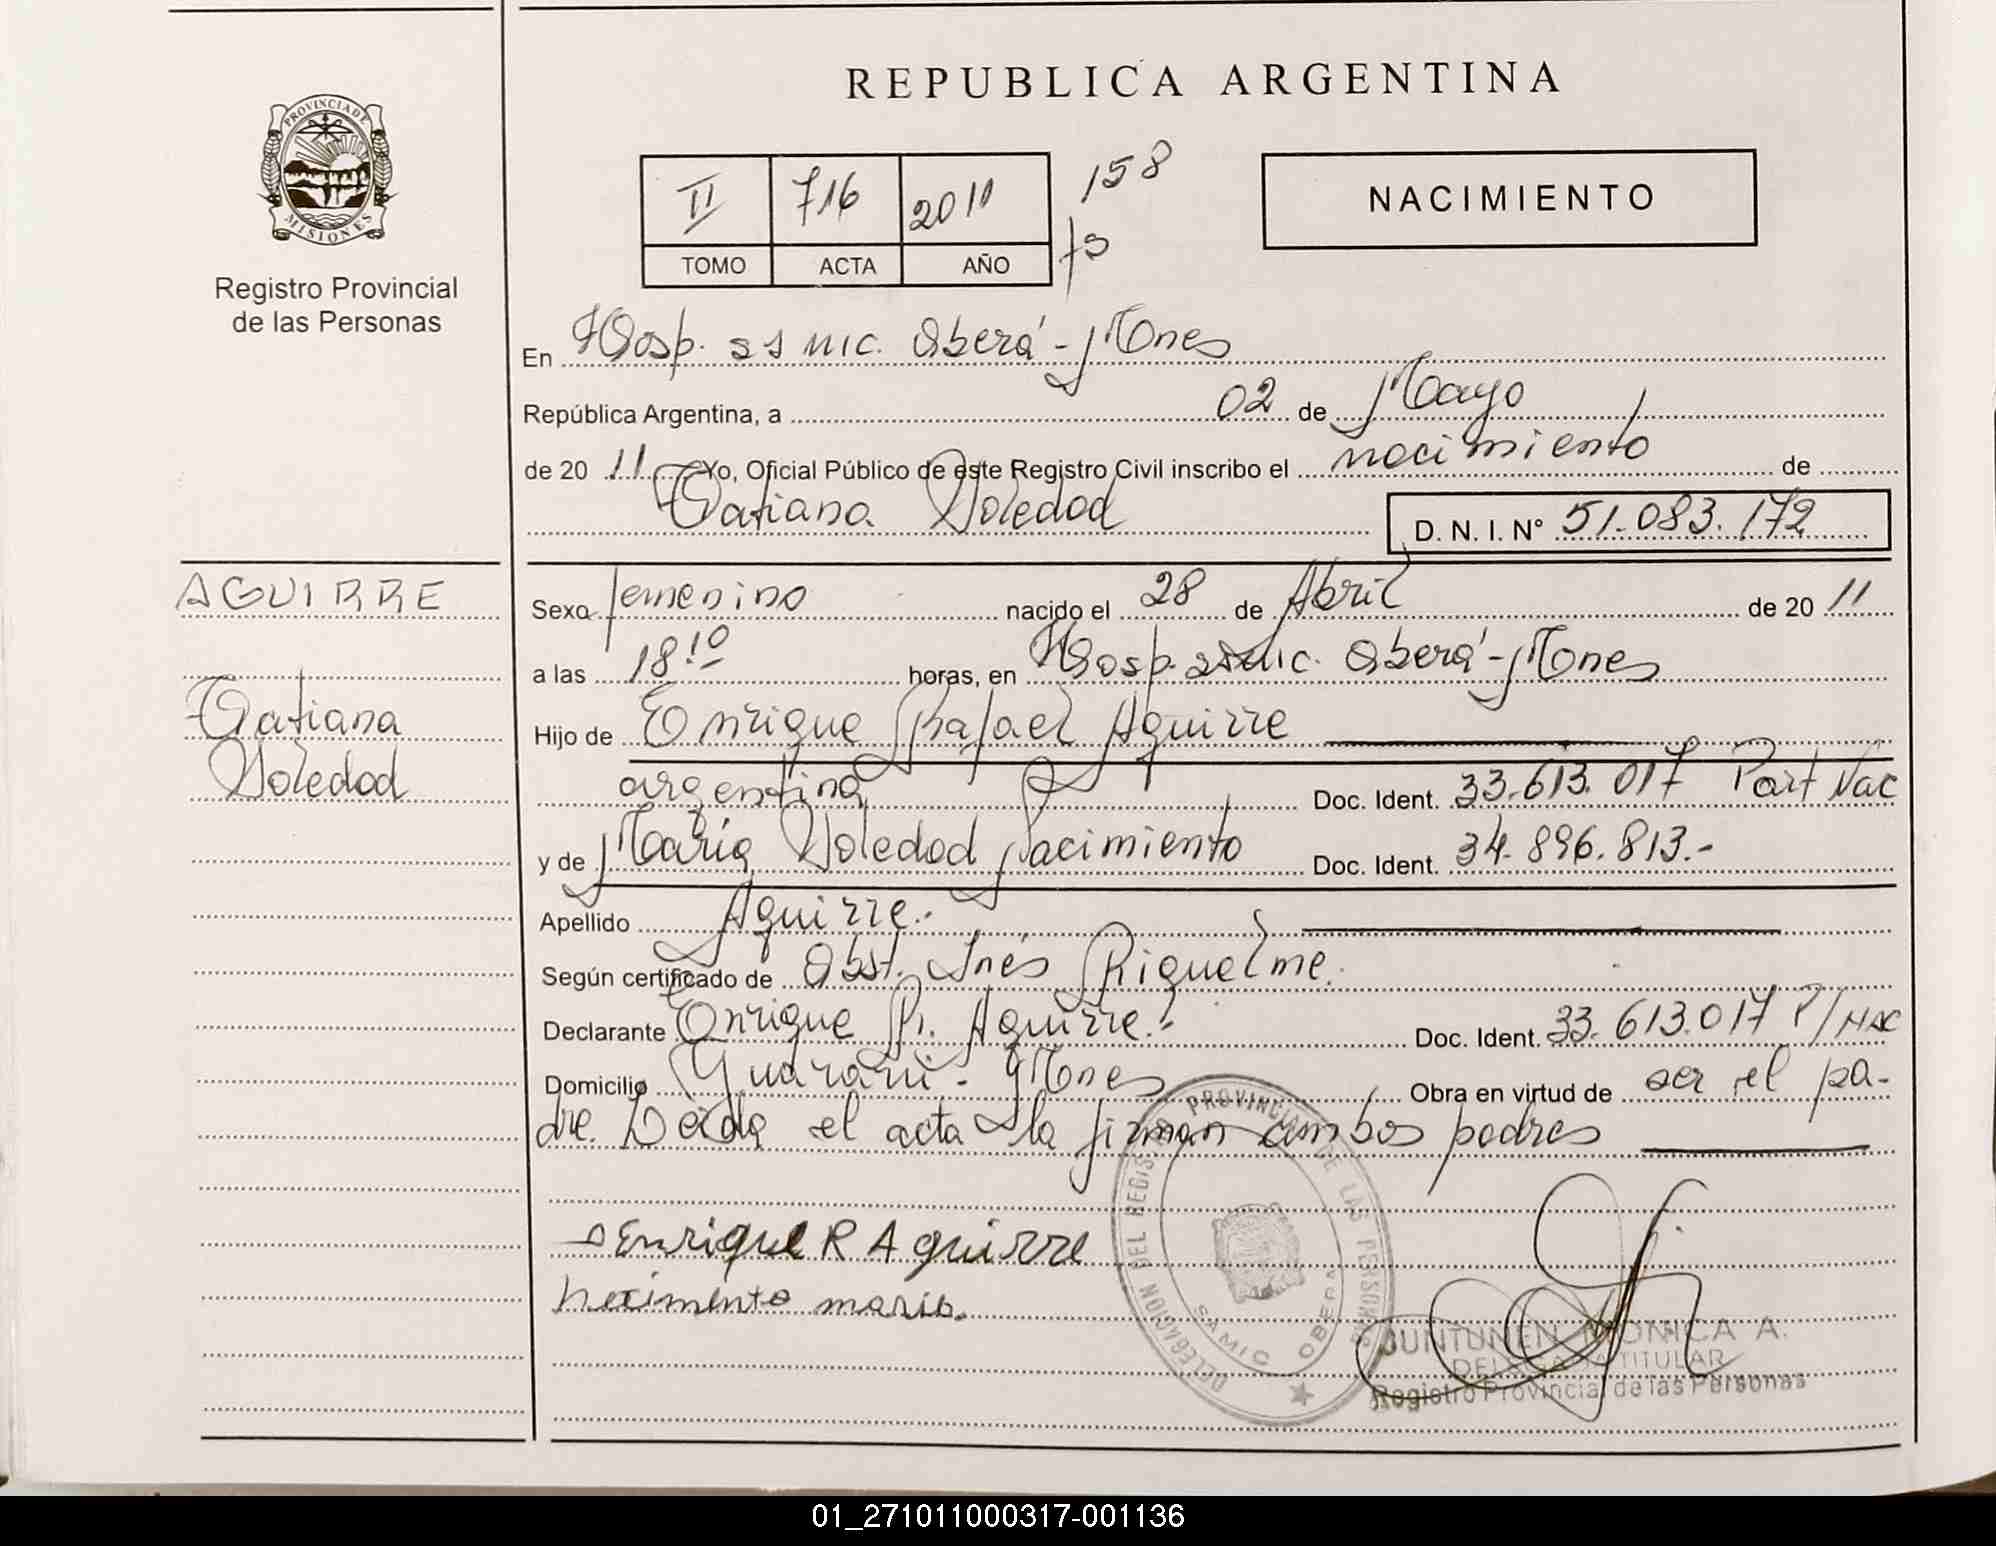 REPUBLICA ARGENTINA
PROVINCIA DE
MISIONES
Registro Provincial
de las Personas
II 716 2011 158
TOMO ACTA AÑO fs
NACIMIENTO
En Hosp. ss mic. Oberá - Mones
República Argentina, a 02 de Mayo
de 20 11 Yo, Oficial Público de este Registro Civil inscribo el nacimiento de
Tatiana Soledad D. N. I. Nº 51.083.172
AGUIRRE
Tatiana
Soledad
Sexo femenino nacido el 28 de Abril de 20 11
a las 18:10 horas, en Hosp. ssmic. Oberá - Mones
Hijo de Enrique Rafael Aguirre
argentina Doc. Ident. 33.613.017 Part Nac
y de María Soledad Nacimiento Doc. Ident. 34.896.813.-
Apellido Aguirre.-
Según certificado de Obst. Inés Riquelme.
Declarante Enrique R. Aguirre.- Doc. Ident. 33.613.017 P/Nac
Domicilio Guaraní - Mones Obra en virtud de ser el pa-
dre. Leida el acta la firman ambos padres
Enrique R Aguirre
Necimento maria.
DELEGACION DEL REGISTRO PROVINCIAL DE LAS PERSONAS
SAMIC OBERA
JUNTUNEN MONICA A.
DELEGADA TITULAR
Registro Provincial de las Personas
01_271011000317-001136